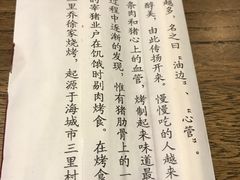 越多，名之曰“油边”、“心管”。
醇美，由此传扬开来。慢慢吃的人越来
条肉和猪心上的血管，烤制起来味道最
过程中逐渐的发现，惟有猪肋骨上的一
宰猪业户在饥饿时剔肉烤食。在烤食
里乔徐家烧烤，起源于海城市三里村